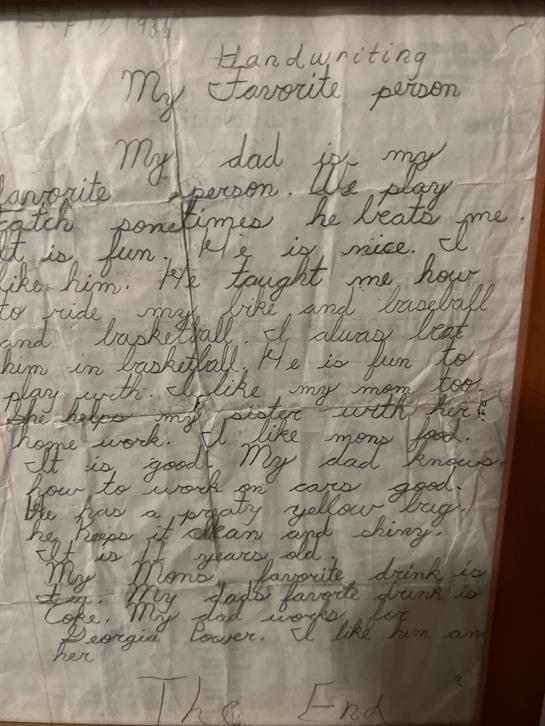 Sept 17, 1986
Handwriting
My Favorite person
My dad is my
favorite person. We play
catch sometimes he beats me.
It is fun. He is nice. I
like him. He taught me how
to ride my bike and baseball
and basketball. I alwas beat
him in basketball. He is fun to
play with. I like my mom too.
She helps my sister with her
home work. I like moms food.
It is good. My dad knows
how to work on cars good.
He has a praty yellow bug.
he keeps it clean and shiny.
It is 11 years old.
My Moms favorite drink is
tea. My dads favorte drink is
Coke. My dad works for
Georgia Power. I like him an
her
The End